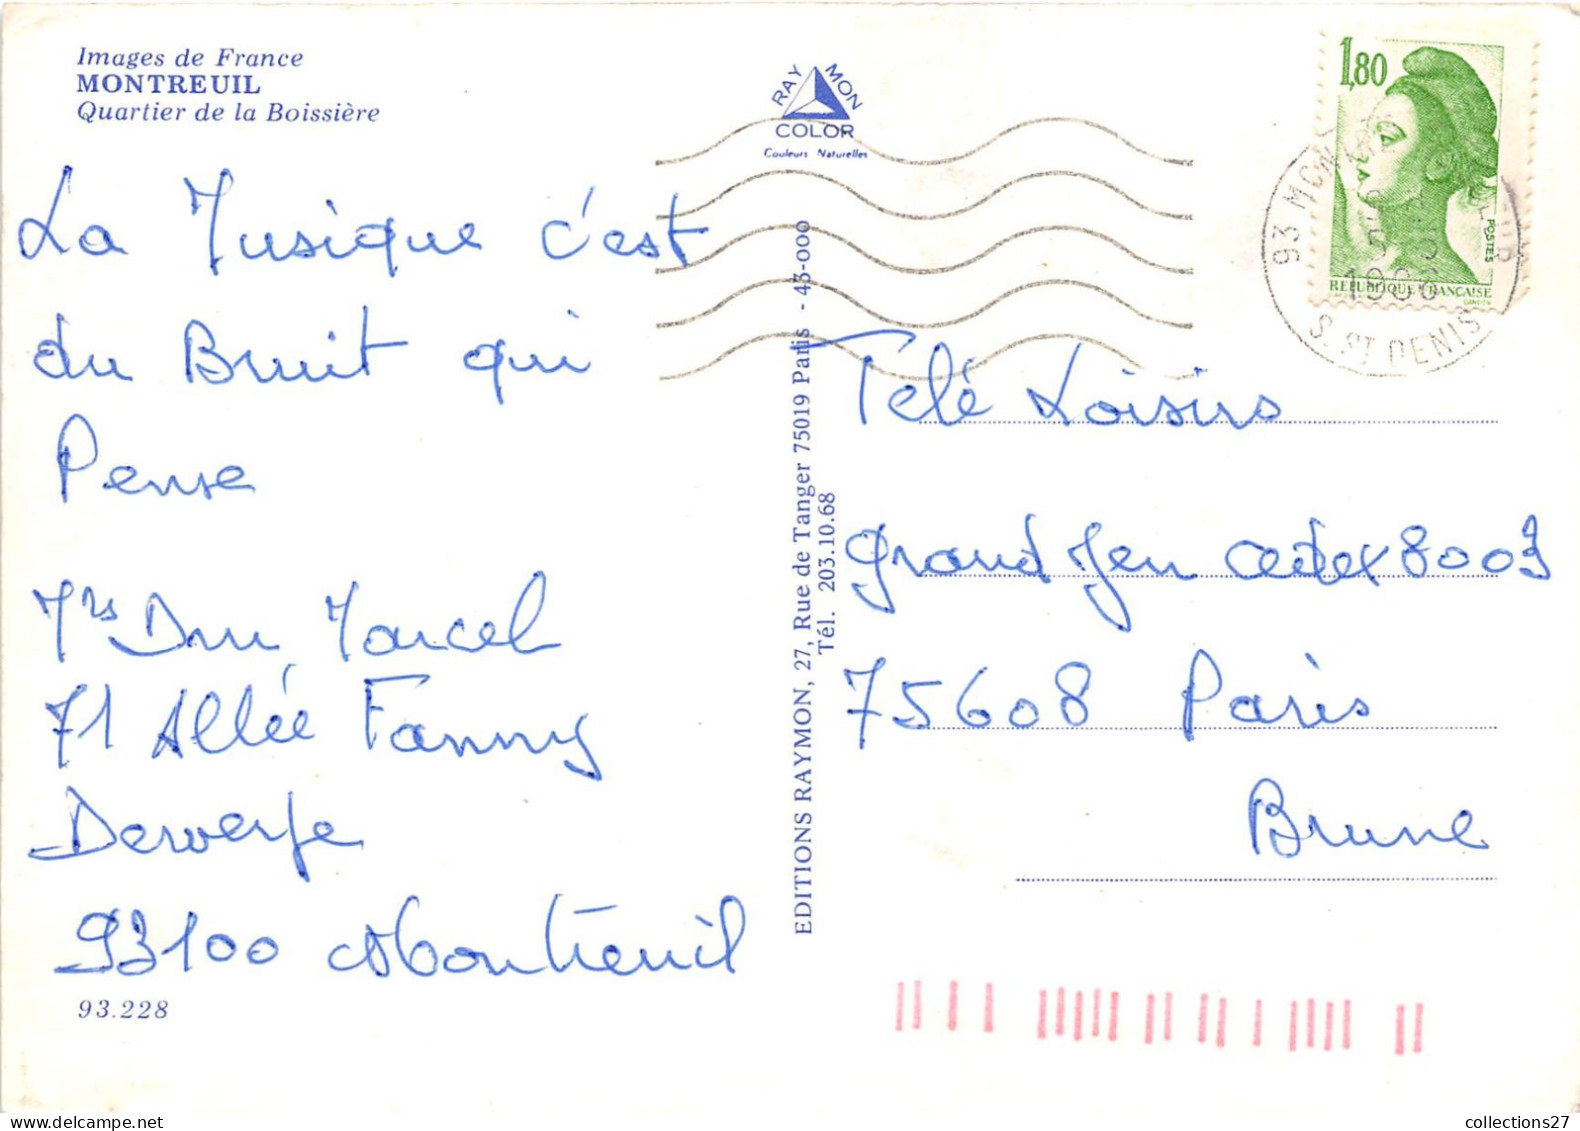 Images de France
MONTREUIL
Quartier de la Boissière
RAYMON
COLOR
Couleurs Naturelles
La Musique c'est
du Bruit qui
Pense
Mrs Dru Marcel
71 Allée Fanny
Dewerpe
93100 Montreuil
93.228
EDITIONS RAYMON, 27, Rue de Tanger 75019 Paris - 43-000
Tél. 203.10.68
1,80
POSTES
REPUBLIQUE FRANÇAISE
93
1986
S. ST DENIS
Télé Loisirs
grand Jeu cedex 8003
75608 Paris
Brune
collections27